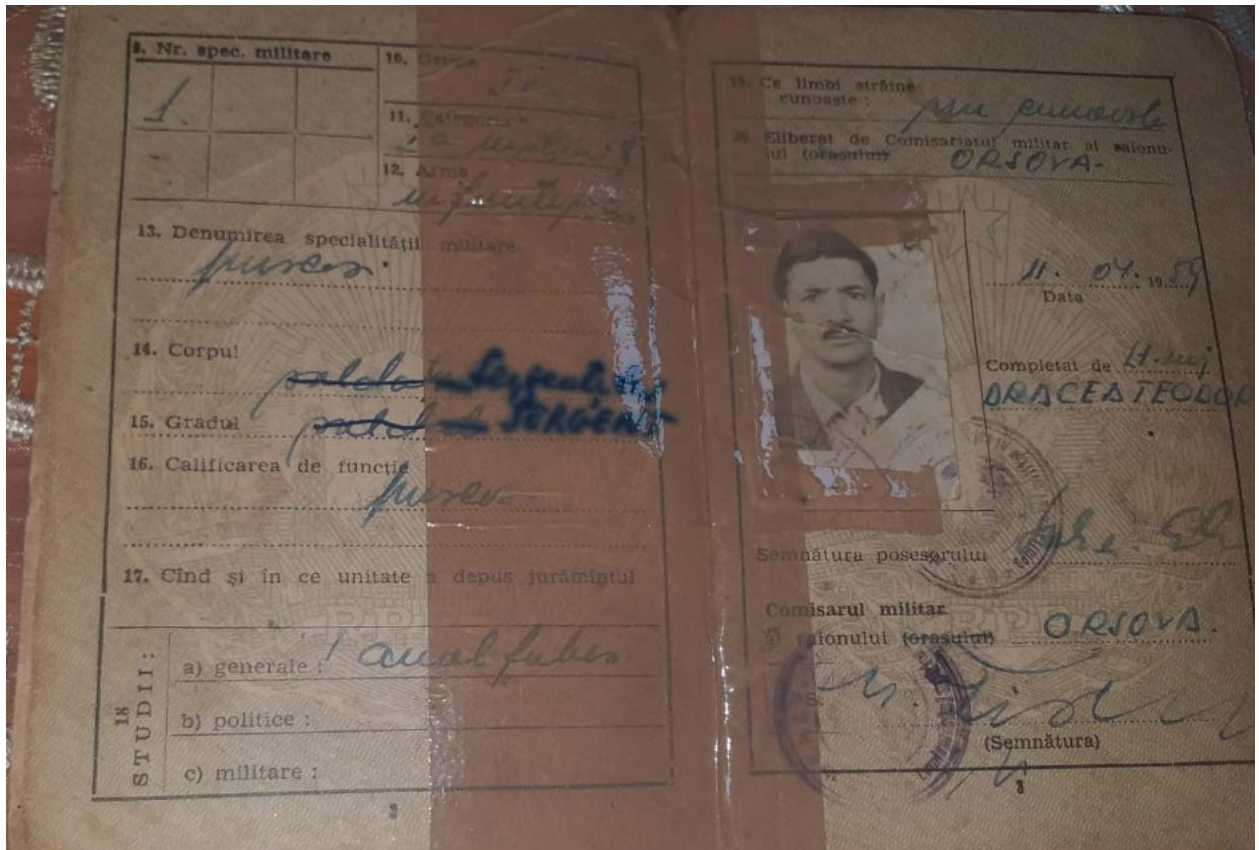 9. Nr. spec. militare
1.
10. Grupa
11. Categoria
12. Arma
infanterie
13. Denumirea specialității militare
puscas
14. Corpul
Sergenti
15. Gradul
SERGENT
16. Calificarea de funcție
puscas
17. Cînd și în ce unitate a depus jurămîntul
18 STUDII:
a) generale : analfabet
b) politice :
c) militare :
2
19. Ce limbi străine
cunoaște : nu cunoaste
20. Eliberat de Comisariatul militar al raionu-
lui (orașului) ORSOVA-
11. 04. 1959
Data
Completat de Lt. maj
DRACEA TEODOR
Semnătura posesorului
Comisarul militar
al raionului (orașului) ORSOVA.
(Semnătura)
3